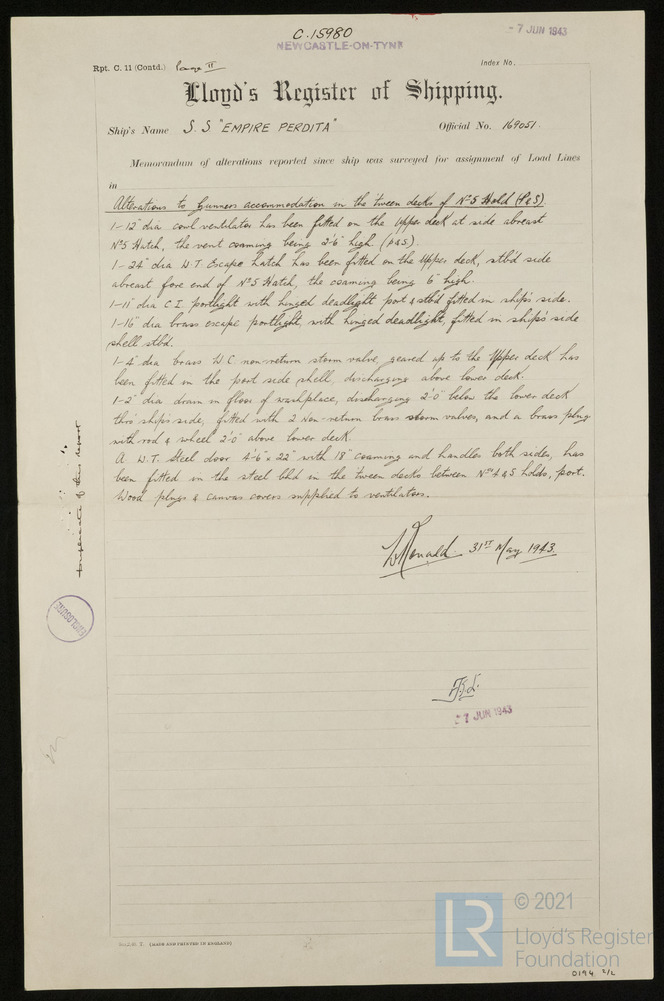 C.15980
- 7 JUN 1943
NEWCASTLE-ON-TYNE
Rpt. C. 11 (Contd.) page II
Index No.
Lloyd's Register of Shipping.
Ship's Name S.S "EMPIRE PERDITA"
Official No. 169051.
Memorandum of alterations reported since ship was surveyed for assignment of Load Lines
in
Alterations to Gunners accommodation in the 'tween decks of No 5 Hold (P&S)
1-12" dia cowl ventilator has been fitted on the upper deck at side abreast
No 5 Hatch, the vent coaming being 2'6" high (P&S).
1-24" dia W.T. Escape hatch has been fitted on the Upper deck, stb'd side
abreast fore end of No 5 Hatch, the coaming being 6" high.
1-11" dia C.I. portlight with hinged deadlight port & stb'd fitted in ship's side.
1-16" dia brass escape portlight, with hinged deadlight, fitted in ship's side
shell stbd.
1-4" dia brass W.C non-return storm valve, geared up to the Upper deck has
been fitted in the port side shell, discharging above lower deck.
1-2" dia drain in floor of washplace, discharging 2'0" below the lower deck
thro' ship's side, fitted with 2 Non-return brass storm valves, and a brass plug
with rod & wheel 2'0" above lower deck.
A W.T. Steel door 4'6" x 22" with 18" coaming and handles both sides, has
been fitted in the steel bhd in the 'tween decks between Nos 4 & 5 holds, port.
Wood plugs & canvas covers supplied to ventilators.
31st May 1943
of this report
- 7 JUN 1943
(MADE AND PRINTED IN ENGLAND)
LR
© 2021
Lloyd's Register
Foundation
0194 2/2